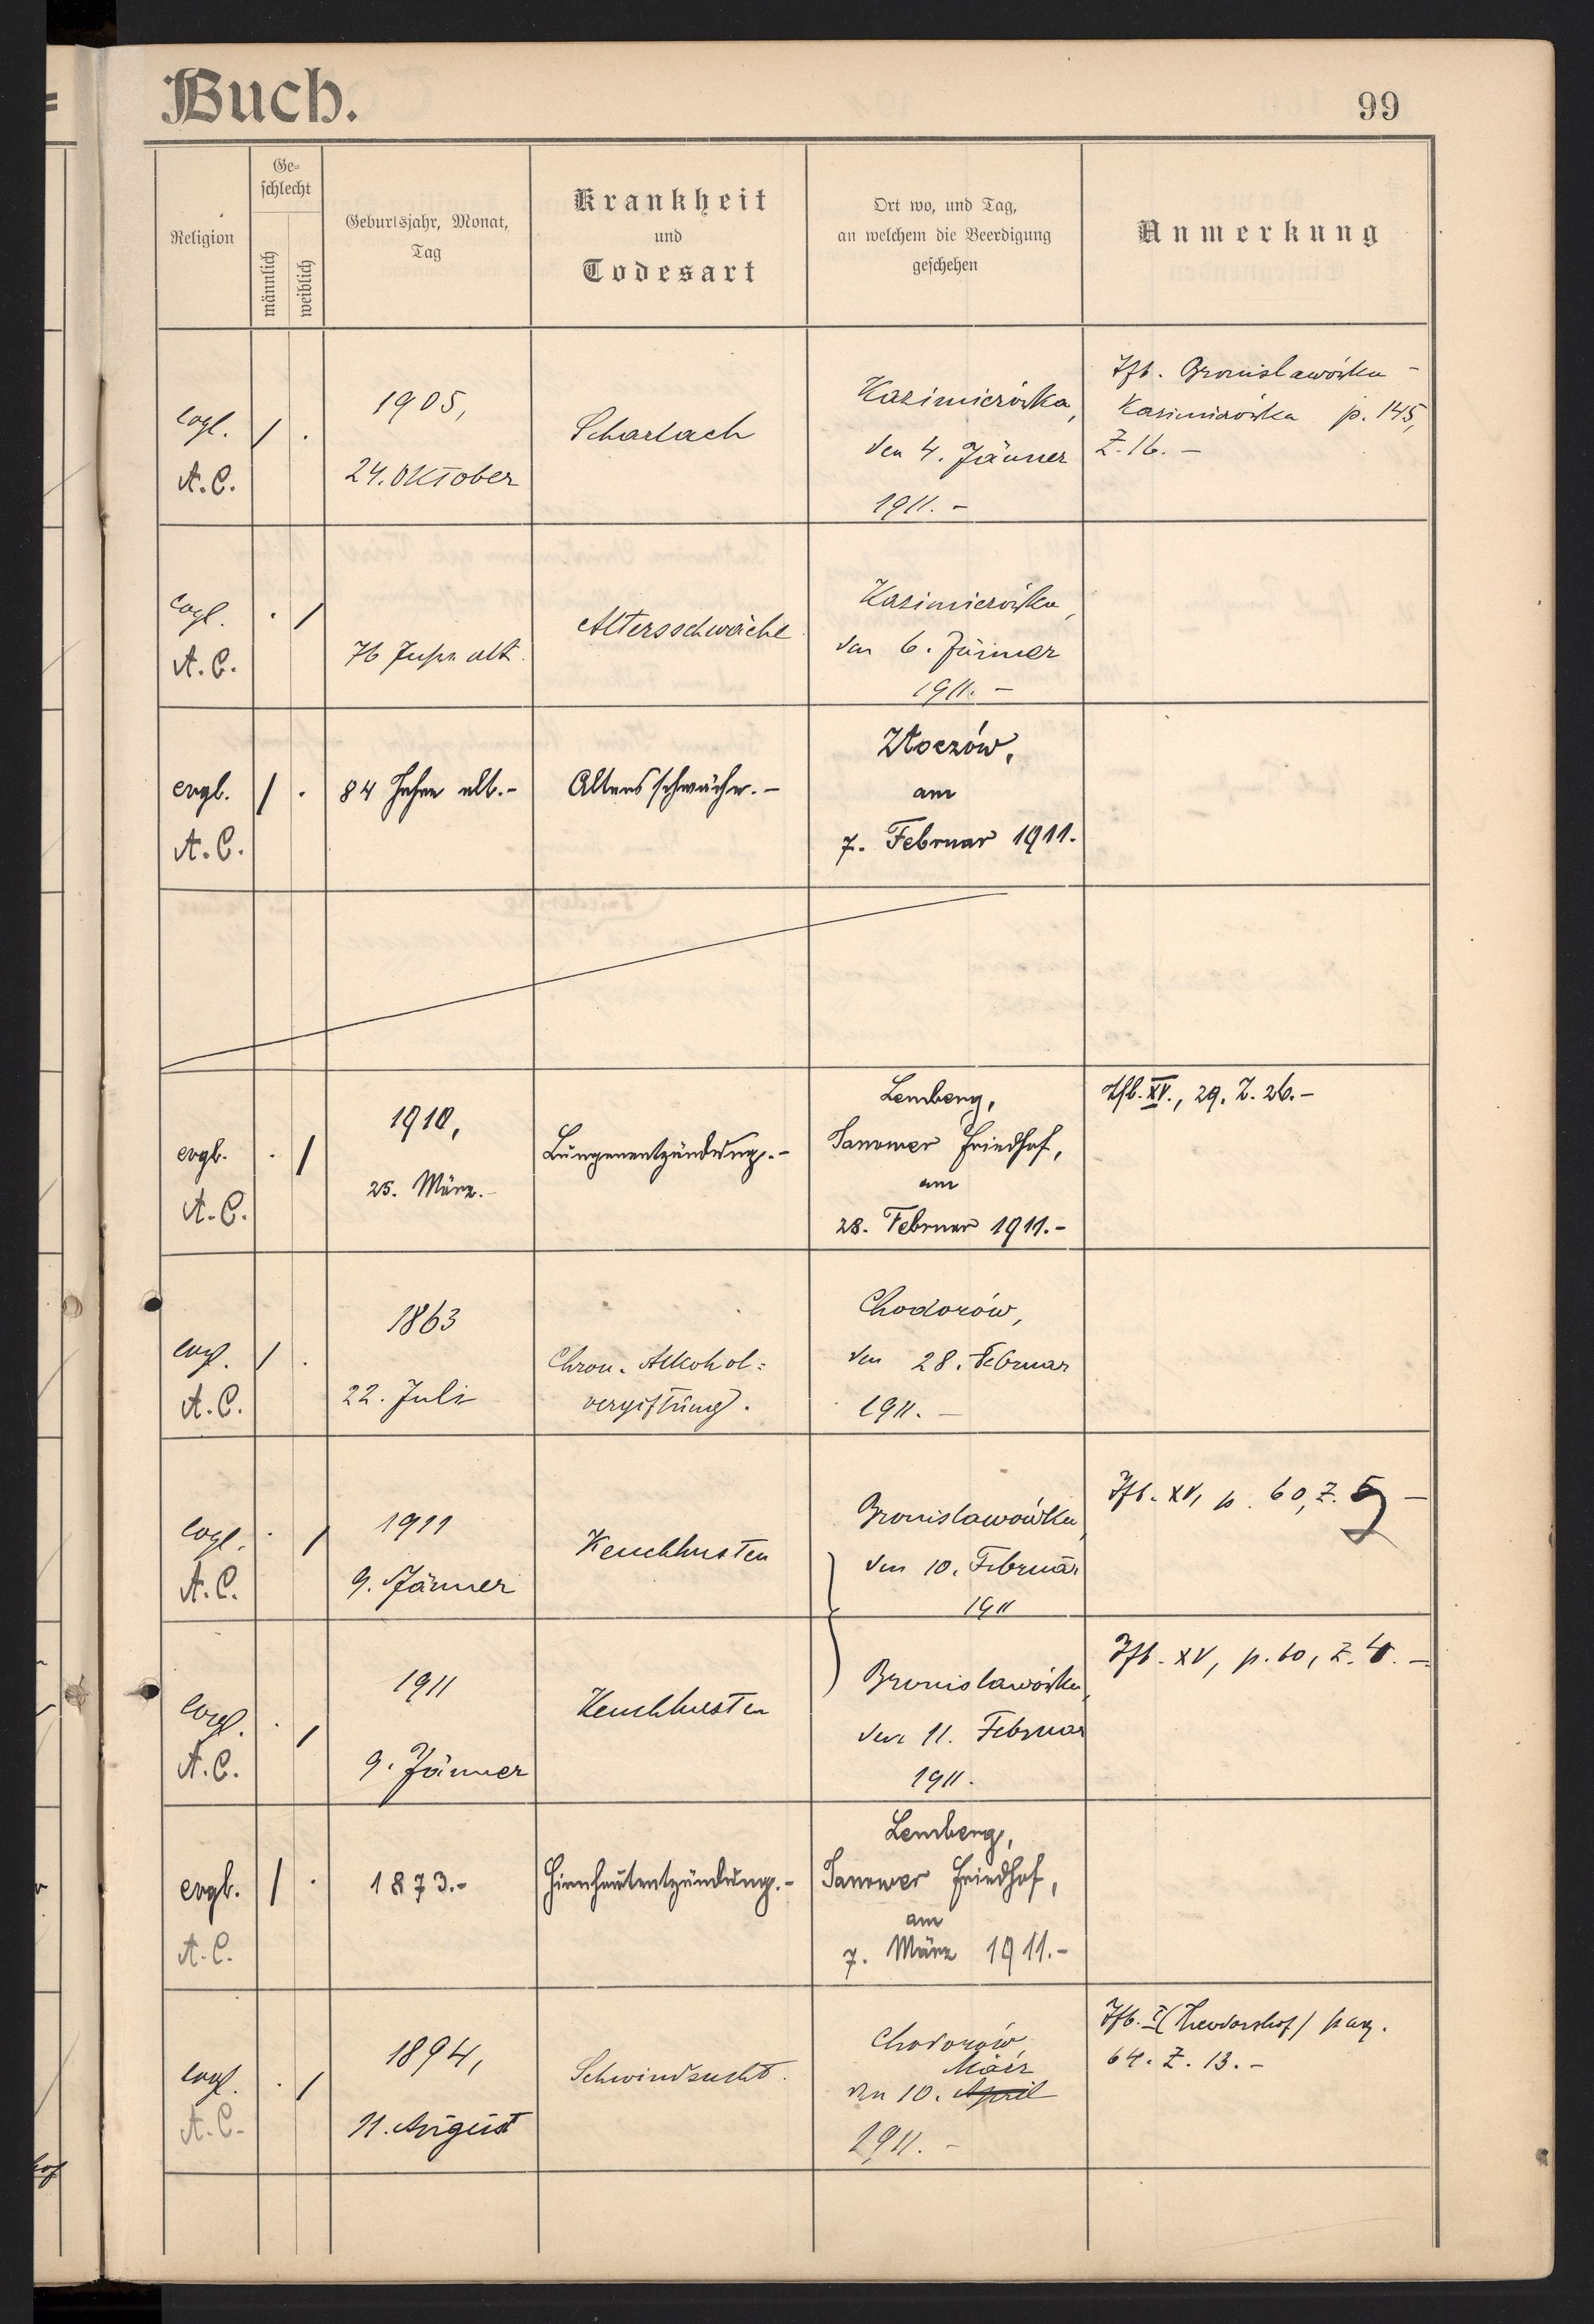 Buch.
99
Religion
Ge=
schlecht
männlich
weiblich
Geburtsjahr, Monat,
Tag
Krankheit
und
Todesart
Ort wo, und Tag,
an welchem die Beerdigung
geschehen
Anmerkung
evgl.
A.C.
/ .
1905,
24. Oktober
Scharlach
Kazimierówka,
den 4. Jänner
1911. -
Tfb. Bronislawówka -
Kasimirówka p. 145,
Z. 16. -
evgl.
A.C.
. /
76 Jahre alt.
Altersschwäche
Kazimierówka,
den 6. Jänner
1911. -
evgl.
A.C.
/ .
84 Jahre alt.-
Altersschwäche.-
Złoczów,
am
7. Februar 1911.
evgl.
A.C.
. /
1910,
25. März.-
Lungenentzündung.-
Lemberg,
Janower Friedhof,
am
28. Februar 1911.-
Tfb. XV., 29. Z. 26.-
evgl.
A.C.
/ .
1863
22. Juli
Chron. Alkohol=
vergiftung.
Chodorów,
den 28. Februar
1911. -
evgl.
A.C.
. /
1911
9. Jänner
Keuchhusten
Bronislawówka,
den 10. Februar
1911
Tfb. XV, p. 60, Z. 5 -
evgl.
A.C.
. /
1911
9. Jänner
Keuchhusten
Bronislawówka,
den 11. Februar
1911.
Tfb. XV, p. 60, Z. 4. -
evgl.
A.C.
/ .
1873.-
Hirnhautentzündung.-
Lemberg,
Janower Friedhof,
am
7. März 1911.-
evgl.
A.C.
. /
1894,
11. August
Schwindsucht.
Chodorów,
März
den 10. April
1911. -
Tfb. I (Theodorshof) pag.
64. Z. 13. -